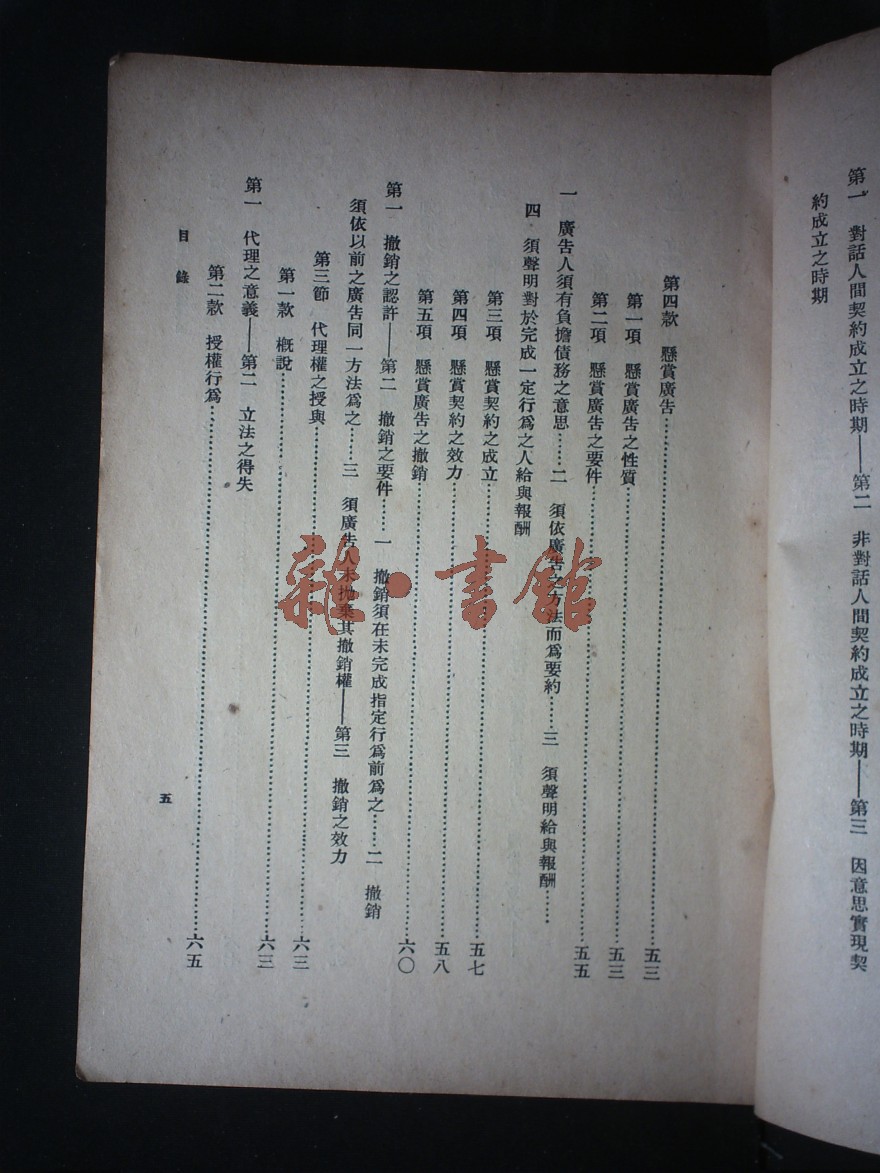 第一　對話人間契約成立之時期——第二　非對話人間契約成立之時期——第三　因意思實現契
約成立之時期
第四款　懸賞廣告……五三
第一項　懸賞廣告之性質……五三
第二項　懸賞廣告之要件……五五
一　廣告人須有負擔債務之意思……二　須依廣告之方法而爲要約……三　須聲明給與報酬……
四　須聲明對於完成一定行爲之人給與報酬
第三項　懸賞契約之成立……五七
第四項　懸賞契約之效力……五八
第五項　懸賞廣告之撤銷……六〇
第一　撤銷之認許——第二　撤銷之要件……一　撤銷須在未完成指定行爲前爲之……二　撤銷
須依以前之廣告同一方法爲之……三　須廣告人未拋棄其撤銷權——第三　撤銷之效力
第三節　代理權之授與……六三
第一款　槪說……六三
第一　代理之意義——第二　立法之得失
第二款　授權行爲……六五
目錄
五
雜·書館